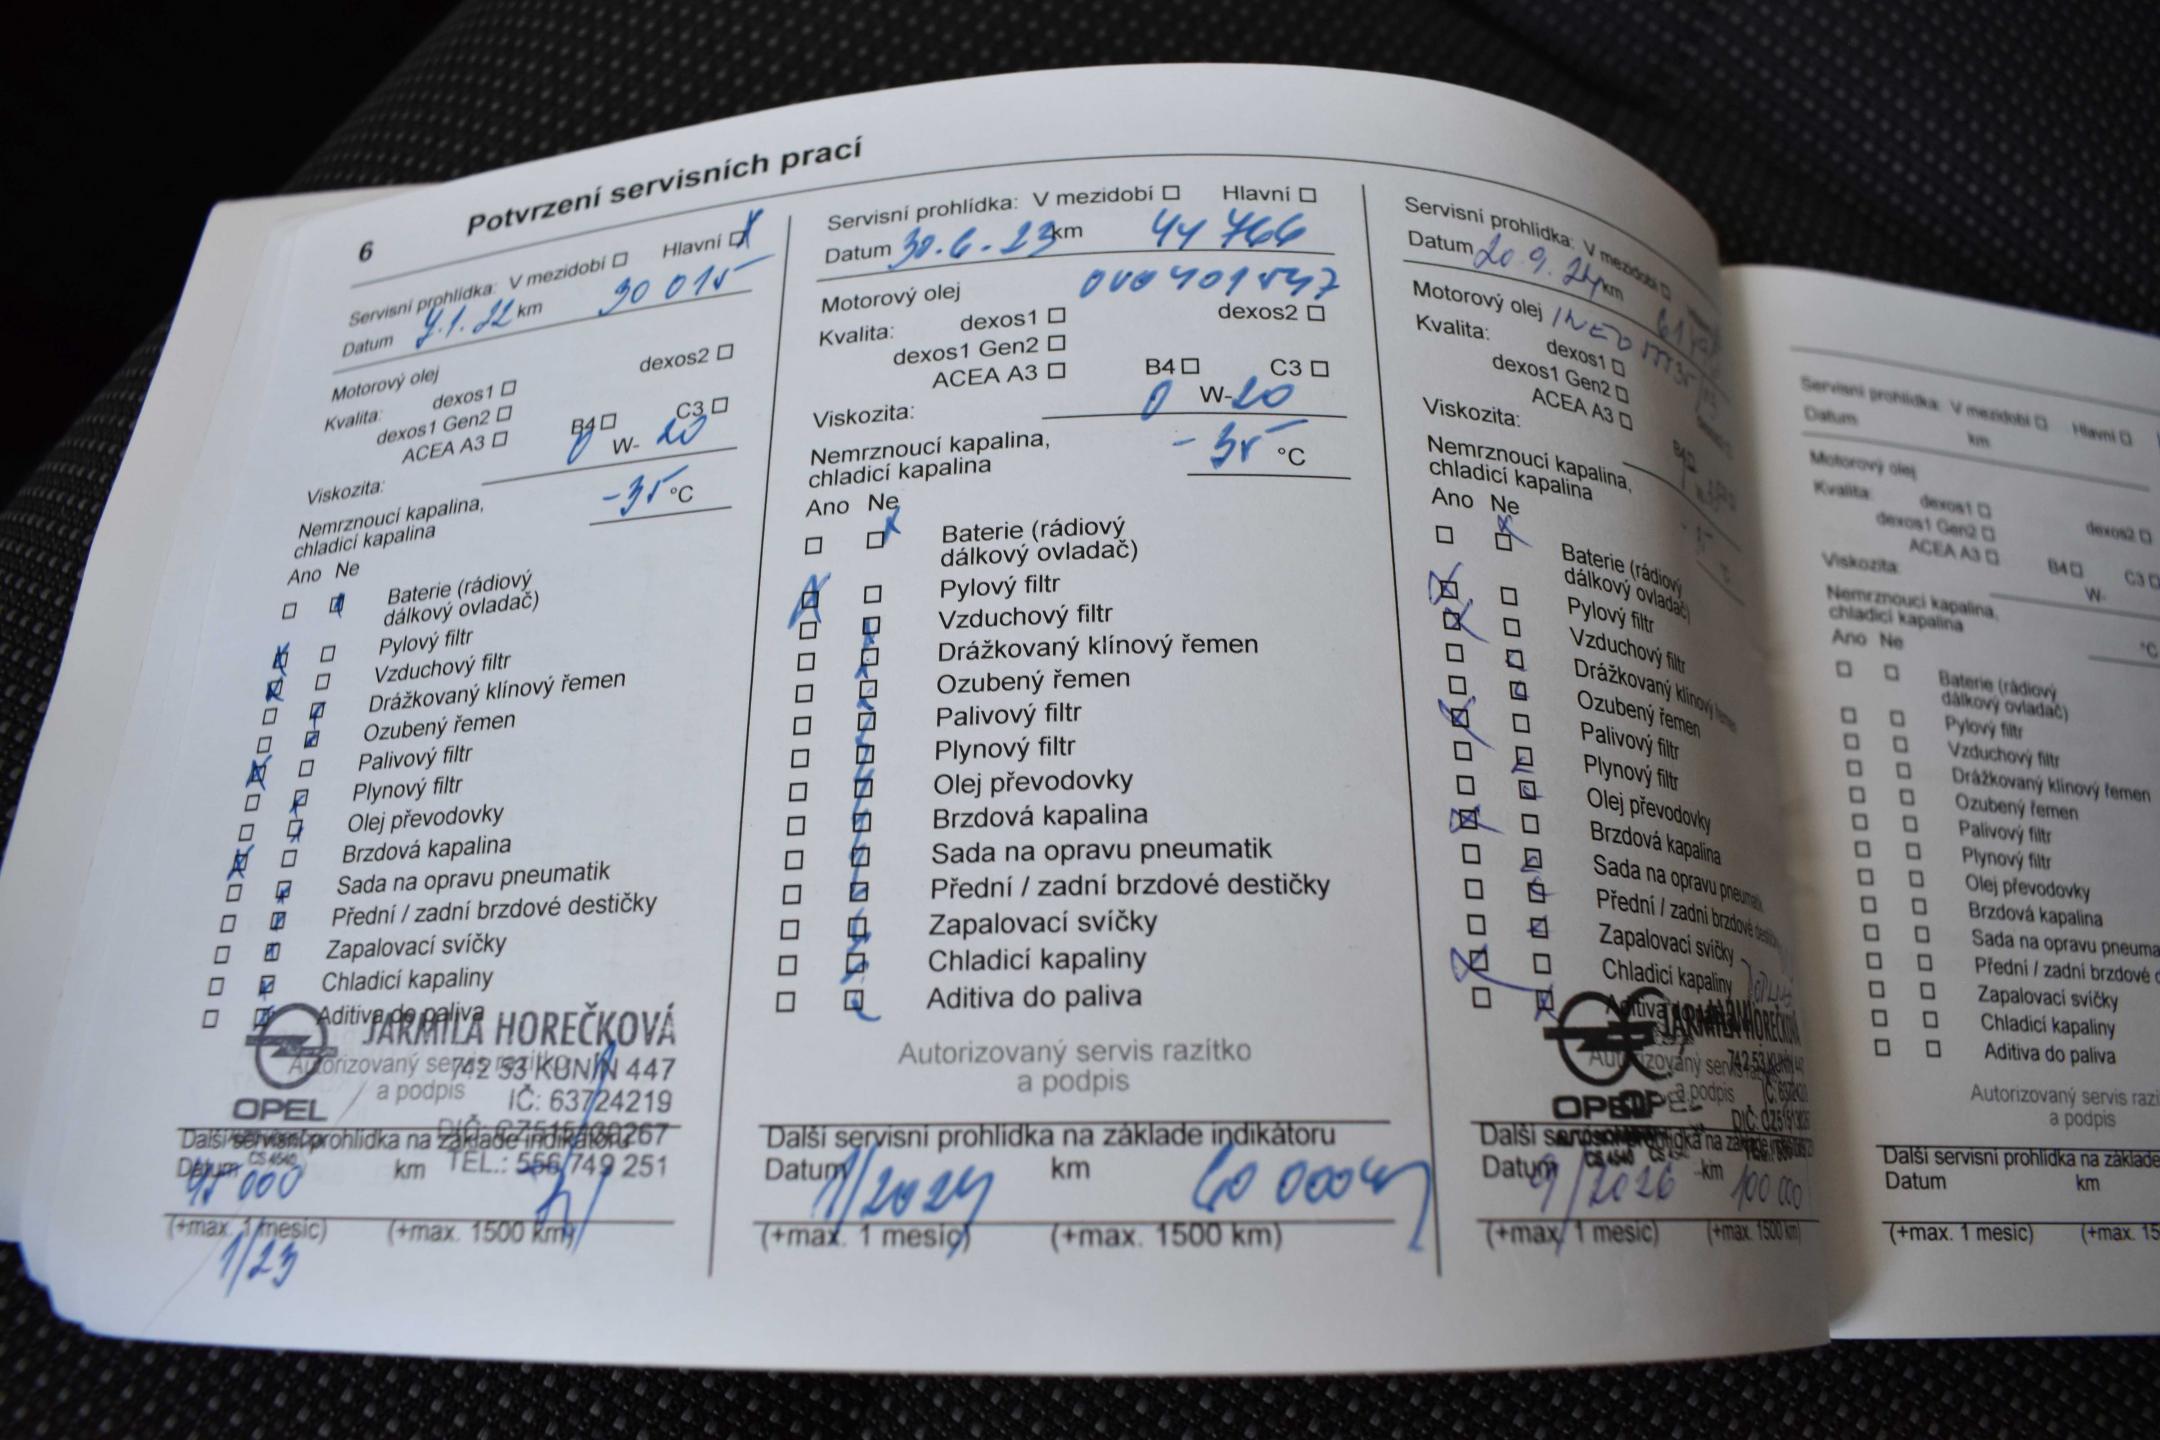 6
Potvrzení servisních prací
Servisní prohlídka: V mezidobí ☐ Hlavní ☒
Datum 7.1.22 km 30 015
Motorový olej
Kvalita: dexos1 ☐ dexos2 ☐
dexos1 Gen2 ☐
ACEA A3 ☐ B4 ☐ C3 ☐
Viskozita: 0 W- 20
Nemrznoucí kapalina,
chladicí kapalina -35 °C
Ano Ne
☐ ☒ Baterie (rádiový
dálkový ovladač)
☒ ☐ Pylový filtr
☒ ☐ Vzduchový filtr
☐ ☒ Drážkovaný klínový řemen
☐ ☒ Ozubený řemen
☒ ☐ Palivový filtr
☐ ☒ Plynový filtr
☐ ☒ Olej převodovky
☒ ☐ Brzdová kapalina
☐ ☒ Sada na opravu pneumatik
☐ ☒ Přední / zadní brzdové destičky
☐ ☒ Zapalovací svíčky
☐ ☒ Chladicí kapaliny
☐ ☒ Aditiva do paliva
JARMILA HOREČKOVÁ
Autorizovaný servis razítko
742 53 KUNÍN 447
a podpis
IČ: 63724219
OPEL
Další servisní prohlídka na základě indikátoru
Datum 45 000 km
TEL.: 556 749 251
(+max. 1 mesíc) (+max. 1500 km)
1/23
Servisní prohlídka: V mezidobí ☐ Hlavní ☐
Datum 30.6.23 km 44 766
Motorový olej 000 401 547
Kvalita: dexos1 ☐ dexos2 ☐
dexos1 Gen2 ☐
ACEA A3 ☐ B4 ☐ C3 ☐
Viskozita: 0 W- 20
Nemrznoucí kapalina,
chladicí kapalina -35 °C
Ano Ne
☐ ☒ Baterie (rádiový
dálkový ovladač)
☒ ☐ Pylový filtr
☐ ☒ Vzduchový filtr
☐ ☒ Drážkovaný klínový řemen
☐ ☒ Ozubený řemen
☐ ☒ Palivový filtr
☐ ☒ Plynový filtr
☐ ☒ Olej převodovky
☐ ☒ Brzdová kapalina
☐ ☒ Sada na opravu pneumatik
☐ ☒ Přední / zadní brzdové destičky
☐ ☒ Zapalovací svíčky
☐ ☒ Chladicí kapaliny
☐ ☒ Aditiva do paliva
Autorizovaný servis razítko
a podpis
Další servisní prohlídka na základe indikátoru
Datum 1/2024 km 60 000
(+max. 1 mesíc) (+max. 1500 km)
Servisní prohlídka: V mezidobí ☐
Datum 20.9.24 km
Motorový olej INEO
Kvalita: dexos1 ☐
dexos1 Gen2 ☐
ACEA A3 ☐
Viskozita:
Nemrznoucí kapalina,
chladicí kapalina
Ano Ne
☐ ☒ Baterie (rádiový
dálkový ovladač)
☒ ☐ Pylový filtr
☒ ☐ Vzduchový filtr
☐ ☒ Drážkovaný klínový řemen
☐ ☒ Ozubený řemen
☒ ☐ Palivový filtr
☐ ☒ Plynový filtr
☐ ☒ Olej převodovky
☒ ☐ Brzdová kapalina
☐ ☒ Sada na opravu pneumatik
☐ ☒ Přední / zadní brzdové destičky
☐ ☒ Zapalovací svíčky
☒ ☐ Chladicí kapaliny
☐ ☒ Aditiva
JARMILA HOREČKOVÁ
742 53 KUNÍN
a podpis
OPEL
Další na základe
Datum 9/2026 km 100 000
(+max. 1 mesíc) (+max. 1500 km)
Servisní prohlídka: V mezidobí ☐ Hlavní ☐
Datum km
Motorový olej
Kvalita: dexos1 ☐ dexos2 ☐
dexos1 Gen2 ☐
ACEA A3 ☐ B4 ☐ C3 ☐
Viskozita: W-
Nemrznoucí kapalina,
chladicí kapalina °C
Ano Ne
☐ ☐ Baterie (rádiový
dálkový ovladač)
☐ ☐ Pylový filtr
☐ ☐ Vzduchový filtr
☐ ☐ Drážkovaný klínový řemen
☐ ☐ Ozubený řemen
☐ ☐ Palivový filtr
☐ ☐ Plynový filtr
☐ ☐ Olej převodovky
☐ ☐ Brzdová kapalina
☐ ☐ Sada na opravu pneuma
☐ ☐ Přední / zadní brzdové d
☐ ☐ Zapalovací svíčky
☐ ☐ Chladicí kapaliny
☐ ☐ Aditiva do paliva
Autorizovaný servis razí
a podpis
Další servisní prohlídka na základe
Datum km
(+max. 1 mesíc) (+max. 15